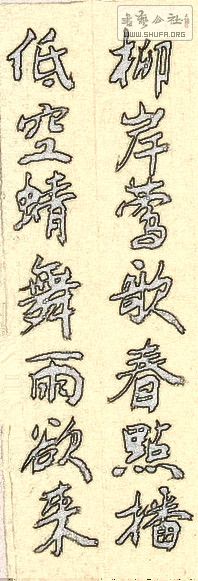 柳岸莺歌春點播
低空蜻舞雨欲来
书艺公社
WWW.SHUFA.ORG